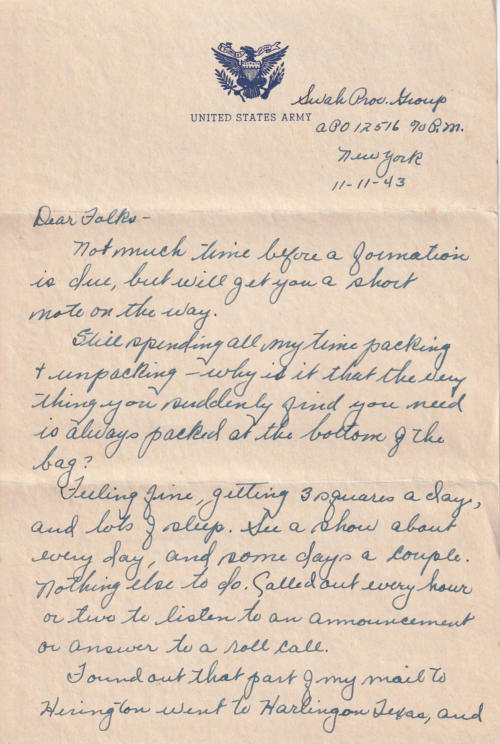 UNITED STATES ARMY
Swak Prov. Group
APO 12516 % P.M.
New York
11-11-43
Dear Folks -
Not much time before a formation
is due, but will get you a short
note on the way.
Still spending all my time packing
+ unpacking - why is it that the very
thing you suddenly find you need
is always packed at the bottom of the
bag?
Feeling fine, getting 3 squares a day,
and lots of sleep. See a show about
every day, and some days a couple.
Nothing else to do. Called out every hour
or two to listen to an announcement
or answer to a roll call.
Found out that part of my mail to
Herington went to Harlingon Texas, and